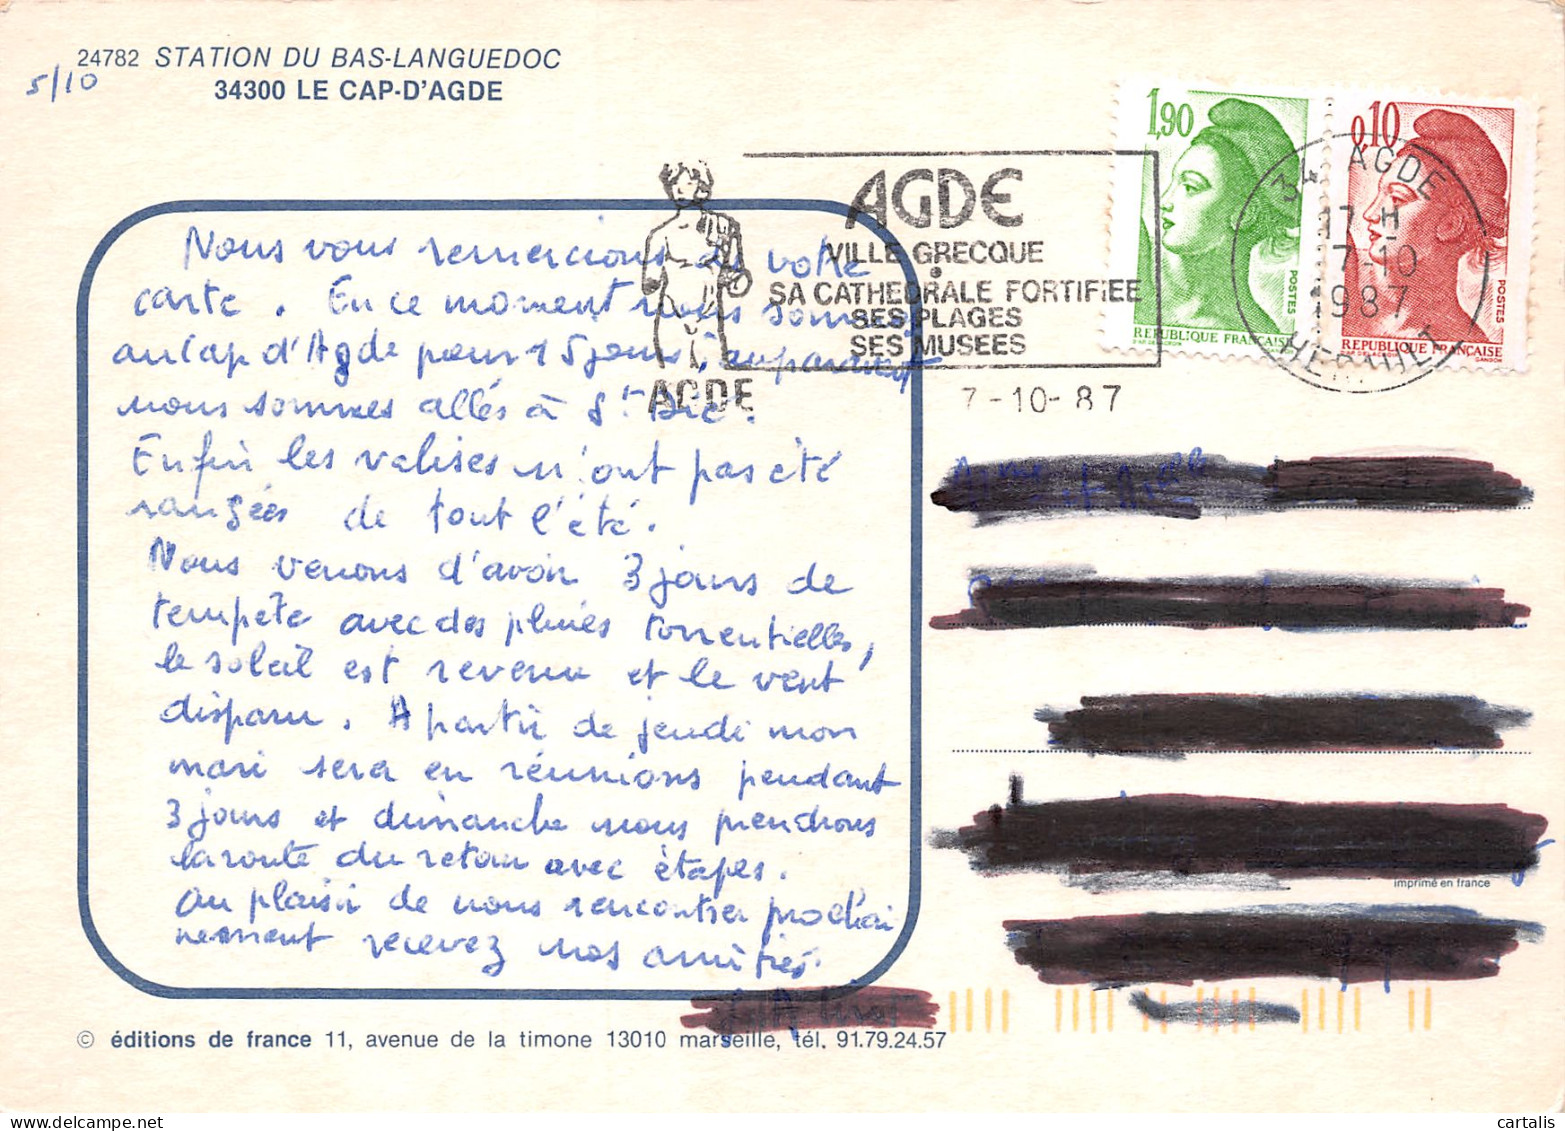 24782 STATION DU BAS-LANGUEDOC
5/10
34300 LE CAP-D'AGDE
1,90
POSTES
REPUBLIQUE FRANÇAISE
0,10
POSTES
REPUBLIQUE FRANÇAISE
GANDON
AGDE
VILLE GRECQUE
SA CATHEDRALE FORTIFIEE
SES PLAGES
SES MUSEES
AGDE
34 AGDE
17 H
7-10
1987
HERAULT
7-10-87
Nous vous remercions de votre
carte. En ce moment nous sommes
au Cap d'Agde pour 15 jours, auparavant
nous sommes allés à St Dié.
Enfin les valises n'ont pas été
rangées de tout l'été.
Nous venons d'avoir 3 jours de
tempête avec des pluies torrentielles,
le soleil est revenu et le vent
disparu. A partir de jeudi mon
mari sera en réunions pendant
3 jours et dimanche nous prendrons
la route du retour avec étapes.
Au plaisir de nous rencontrer prochai
nement recevez nos amitiés.
imprimé en france
© éditions de france 11, avenue de la timone 13010 marseille, tél. 91.79.24.57
cartalis